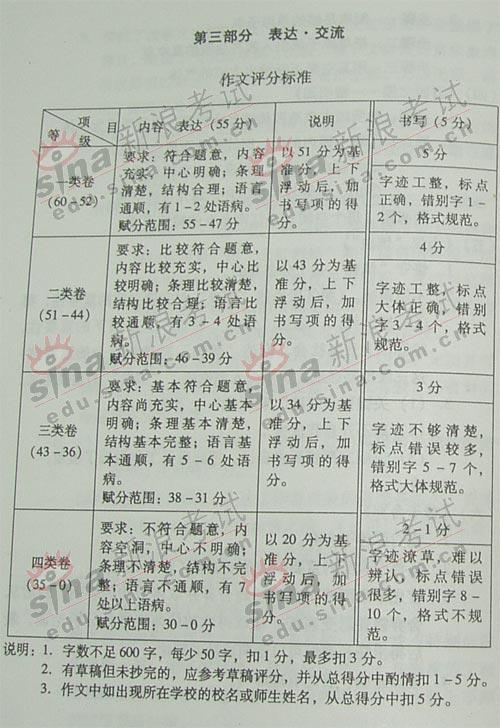 第三部分 表达·交流
作文评分标准
项 目
等 级
内容 表达（55 分）
说明
书写（5 分）
一类卷
（60－52）
要求：符合题意，内容
充实，中心明确；条理
清楚，结构合理；语言
通顺，有 1－2 处语病。
赋分范围：55－47 分
以 51 分为基
准分，上下
浮动后，加
书写项的得
分。
5 分
字迹工整，标点
正确，错别字 1－
2 个，格式规范。
二类卷
（51－44）
要求：比较符合题意，
内容比较充实，中心比
较明确；条理比较清楚，
结构比较合理；语言比
较通顺，有 3－4 处语
病。
赋分范围：46－39 分
以 43 分为基
准分，上下
浮动后，加
书写项的得
分。
4 分
字迹工整，标点
大体正确，错别
字 3－4 个，格式
规范。
三类卷
（43－36）
要求：基本符合题意，
内容尚充实，中心基本
明确；条理基本清楚，
结构基本完整；语言基
本通顺，有 5－6 处语
病。
赋分范围：38－31 分
以 34 分为基
准分，上下
浮动后，加
书写项的得
分。
3 分
字迹不够清楚，
标点错误较多，
错别字 5－7 个，
格式大体规范。
四类卷
（35－0）
要求：不符合题意，内
容空洞，中心不明确；
条理不清楚，结构不完
整；语言不通顺，有 7
处以上语病。
赋分范围：30－0 分
以 20 分为基
准分，上下
浮动后，加
书写项的得
分。
2－1 分
字迹潦草，难以
辨认，标点错误
很多，错别字 8－
10 个，格式不规
范。
说明：1. 字数不足 600 字，每少 50 字，扣 1 分，最多扣 3 分。
2. 有草稿但未抄完的，应参考草稿评分，并从总得分中酌情扣 1－5 分。
3. 作文中如出现所在学校的校名或师生姓名，从总得分中扣 5 分。
sina 新浪考试
edu.sina.com.cn
sina 新浪考试
edu.sina.com.cn
sina 新浪考试
edu.sina.com.cn
sina 新浪考试
edu.sina.com.cn
sina 新浪考试
edu.sina.com.cn
sina 新浪考试
edu.sina.com.cn